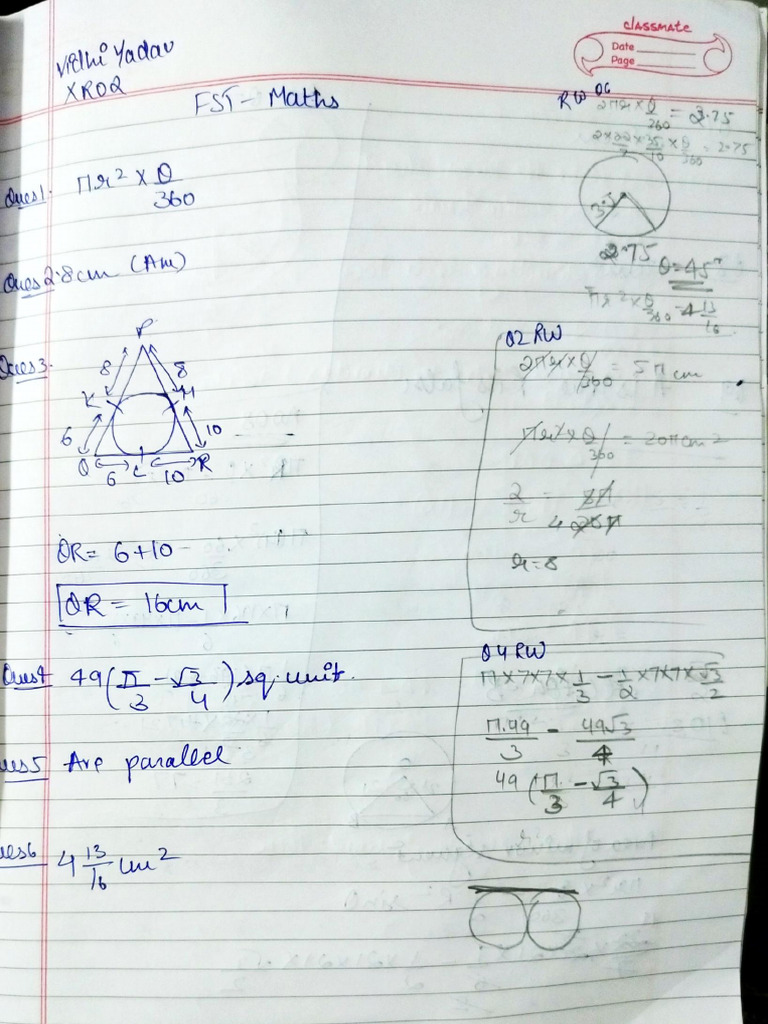 classmate
Date
Page
Vidhi Yadav
XR02
FST - Maths
Ques1. πr² × θ/360
Ques2. 8cm (Am)
Ques3.
P
8
8
K
M
6
10
Q
6
L
10
R
QR = 6+10
QR = 16cm
Ques4 49(π/3 - √3/4) sq. unit.
Ques5 Are parallel
Ques6 4 13/16 cm²
RW Q6
2πr × θ/360 = 2.75
2×22/7×35/10×θ/360 = 2.75
3.5
2.75
θ=45°
πr² × θ/360 = 4 13/16
Q2 RW
2πr×θ/360 = 5π cm
πr²×θ/360 = 20π cm²
2/r = 5π/20π
4
r = 8
Q4 RW
π×7×7×1/3 - 1/2×7×7×√3/2
π.49/3 - 49√3/4
49(π/3 - √3/4)